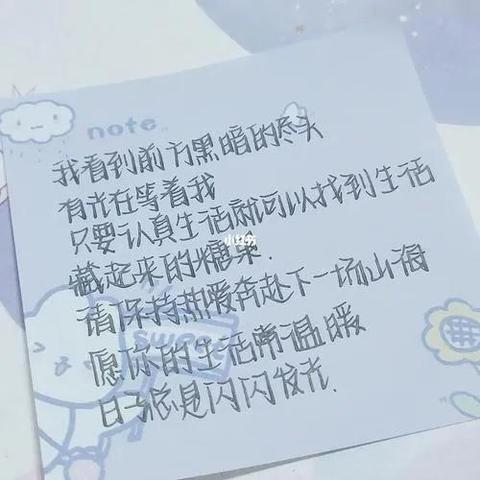 note
我看到前方黑暗的尽头
有光在等着我
只要认真生活就可以找到生活
藏起来的糖果.
请保持热爱奔赴下一场山海
愿你的生活常温暖
日子总是闪闪发光.
小红书
SWEET